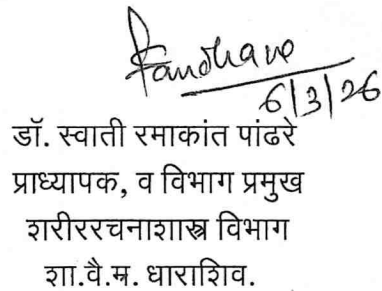 Pandhare
6/3/26
डॉ. स्वाती रमाकांत पांढरे
प्राध्यापक, व विभाग प्रमुख
शरीररचनाशास्त्र विभाग
शा.वै.म. धाराशिव.